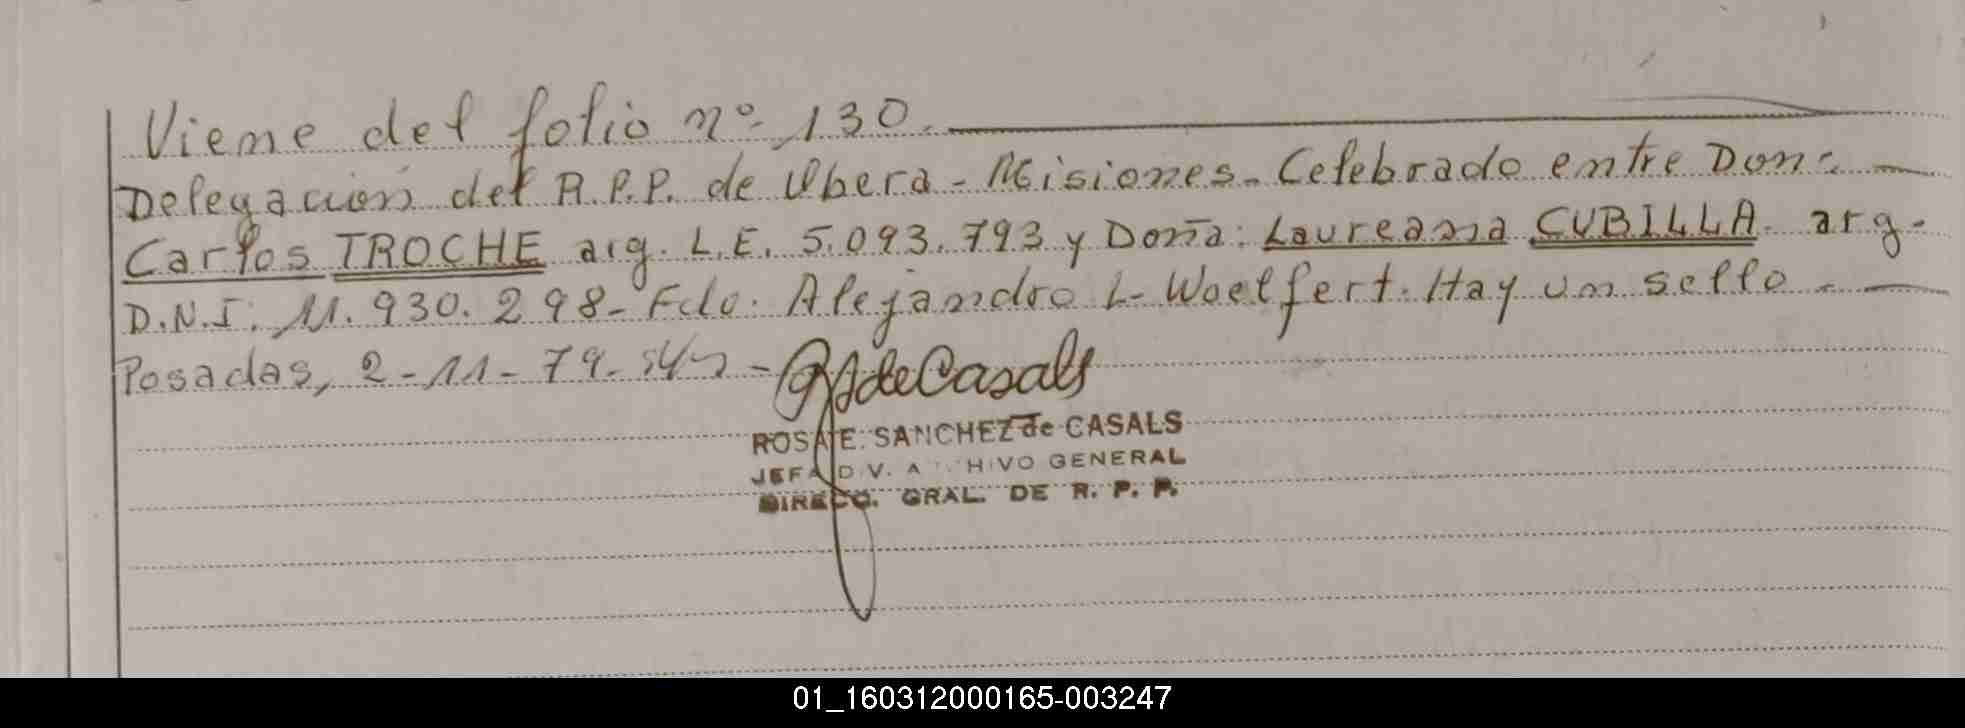 Viene del folio nº 130.
Delegación del R.P.P. de Obera - Misiones - Celebrado entre Don:
Carlos TROCHE arg. L.E. 5.093.793 y Doña: Laureana CUBILLA. arg.
D.N.I. 11.930.298 - Fdo. Alejandro L. Woelfert. Hay un sello.
Posadas, 2-11-79.
deCasals
ROSA E. SANCHEZ de CASALS
JEFA DIV. ARCHIVO GENERAL
DIRECC. GRAL. DE R. P. P.
01_160312000165-003247